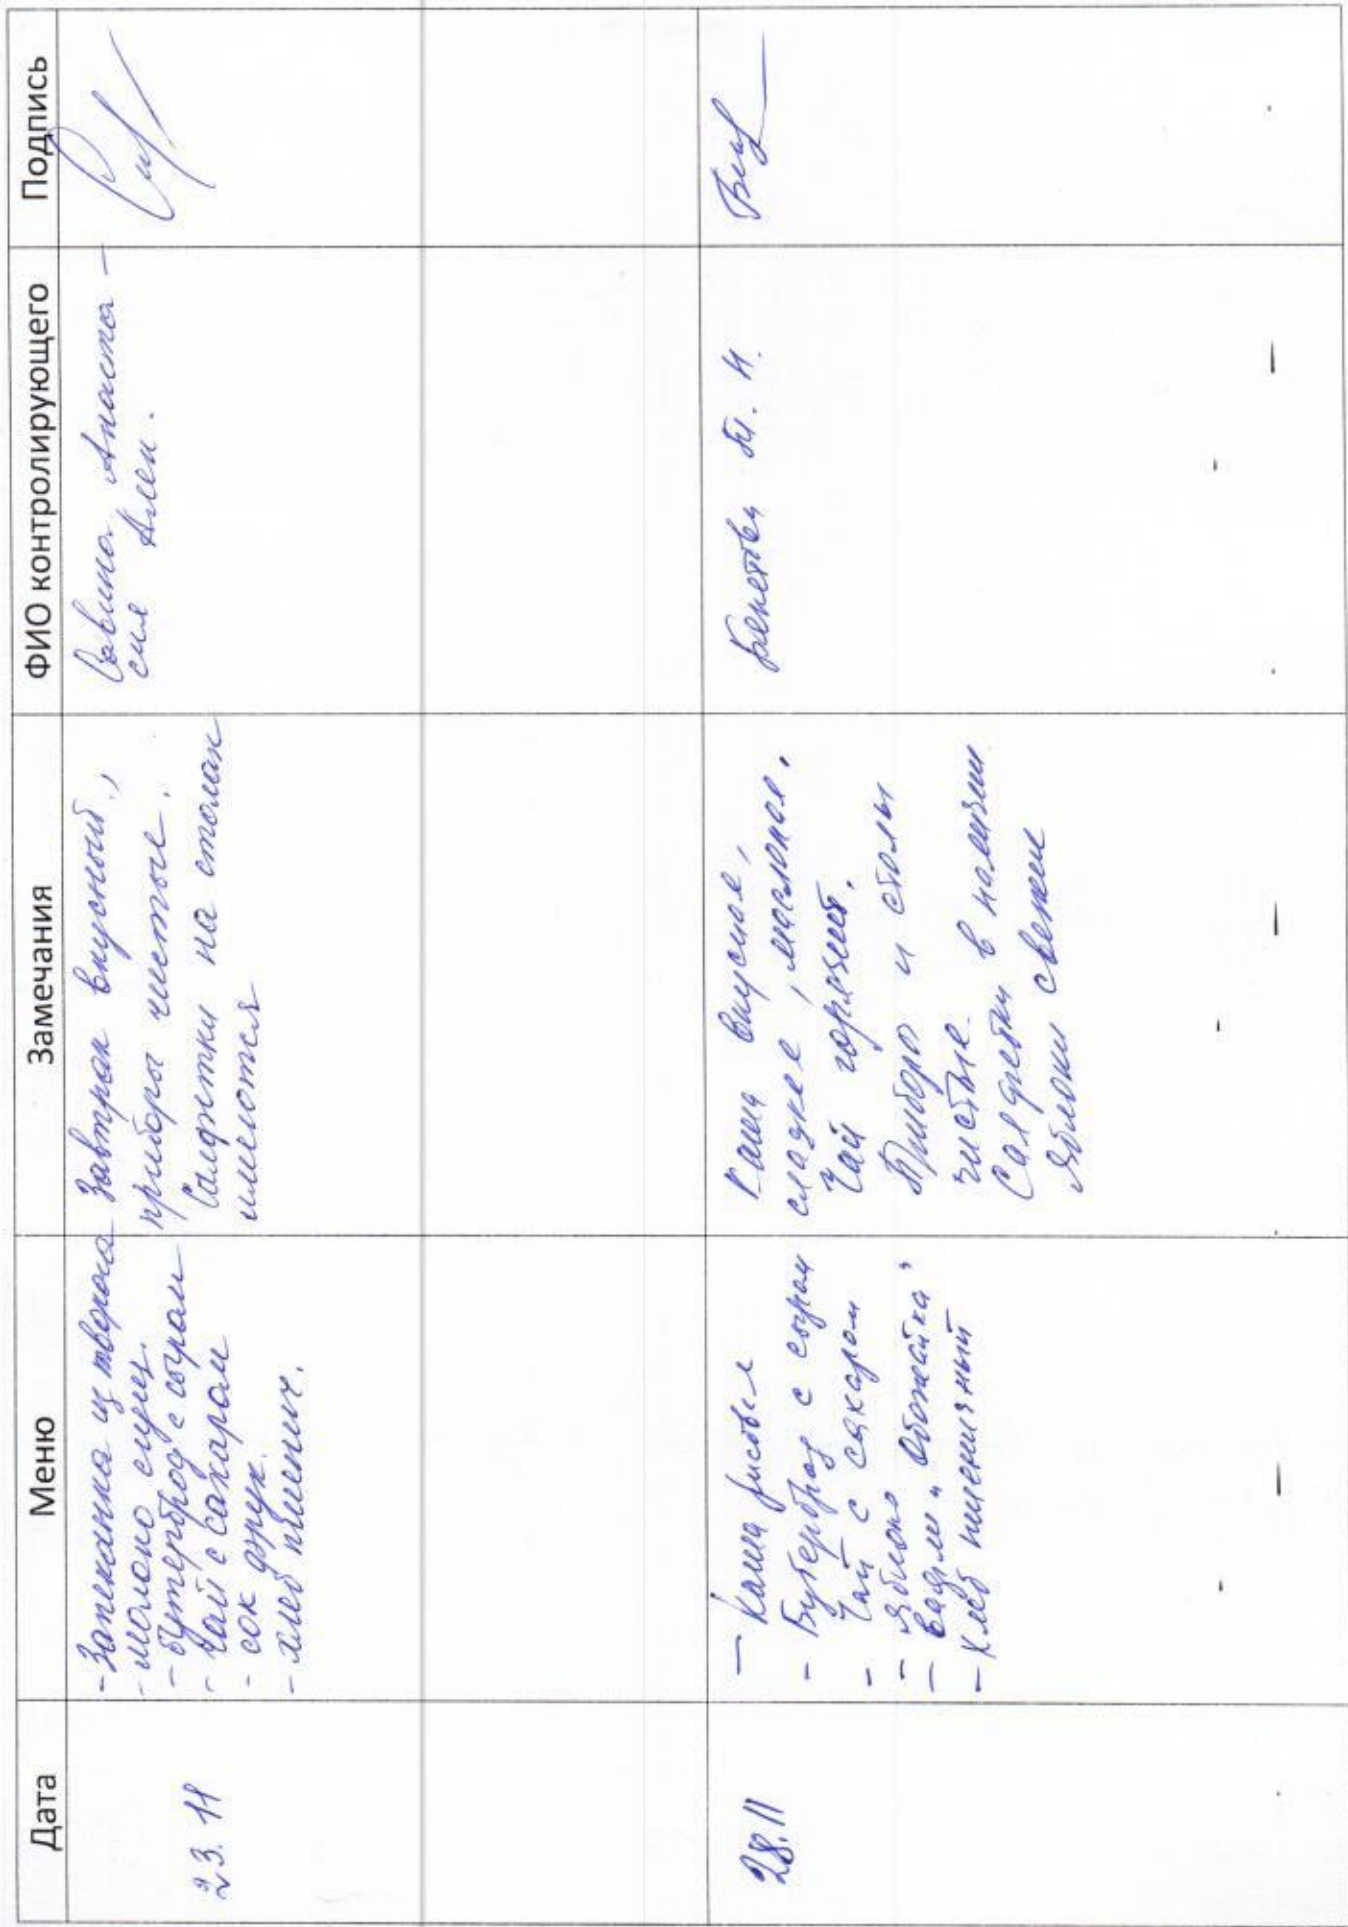 Дата Меню Замечания ФИО контролирующего Подпись
23.11
- Запеканка из творога
- молоко сгущ.
- бутерброд с сыром
- чай с сахаром
- сок фрук.
- хлеб пшенич.
Завтрак вкусный,
приборы чистые.
Салфетки на столах
имеются
Савина Анаста-
сия Алек.
28.11
- Каша рисовая
- Бутерброд с сыром
- Чай с сахаром
- яблоко
- вафли „Обожайка"
- Хлеб пшеничный
Каша вкусная,
сладкая, молочная.
Чай горячий.
Приборы и столы
чистые.
Салфетки в наличии
яблоки свежие